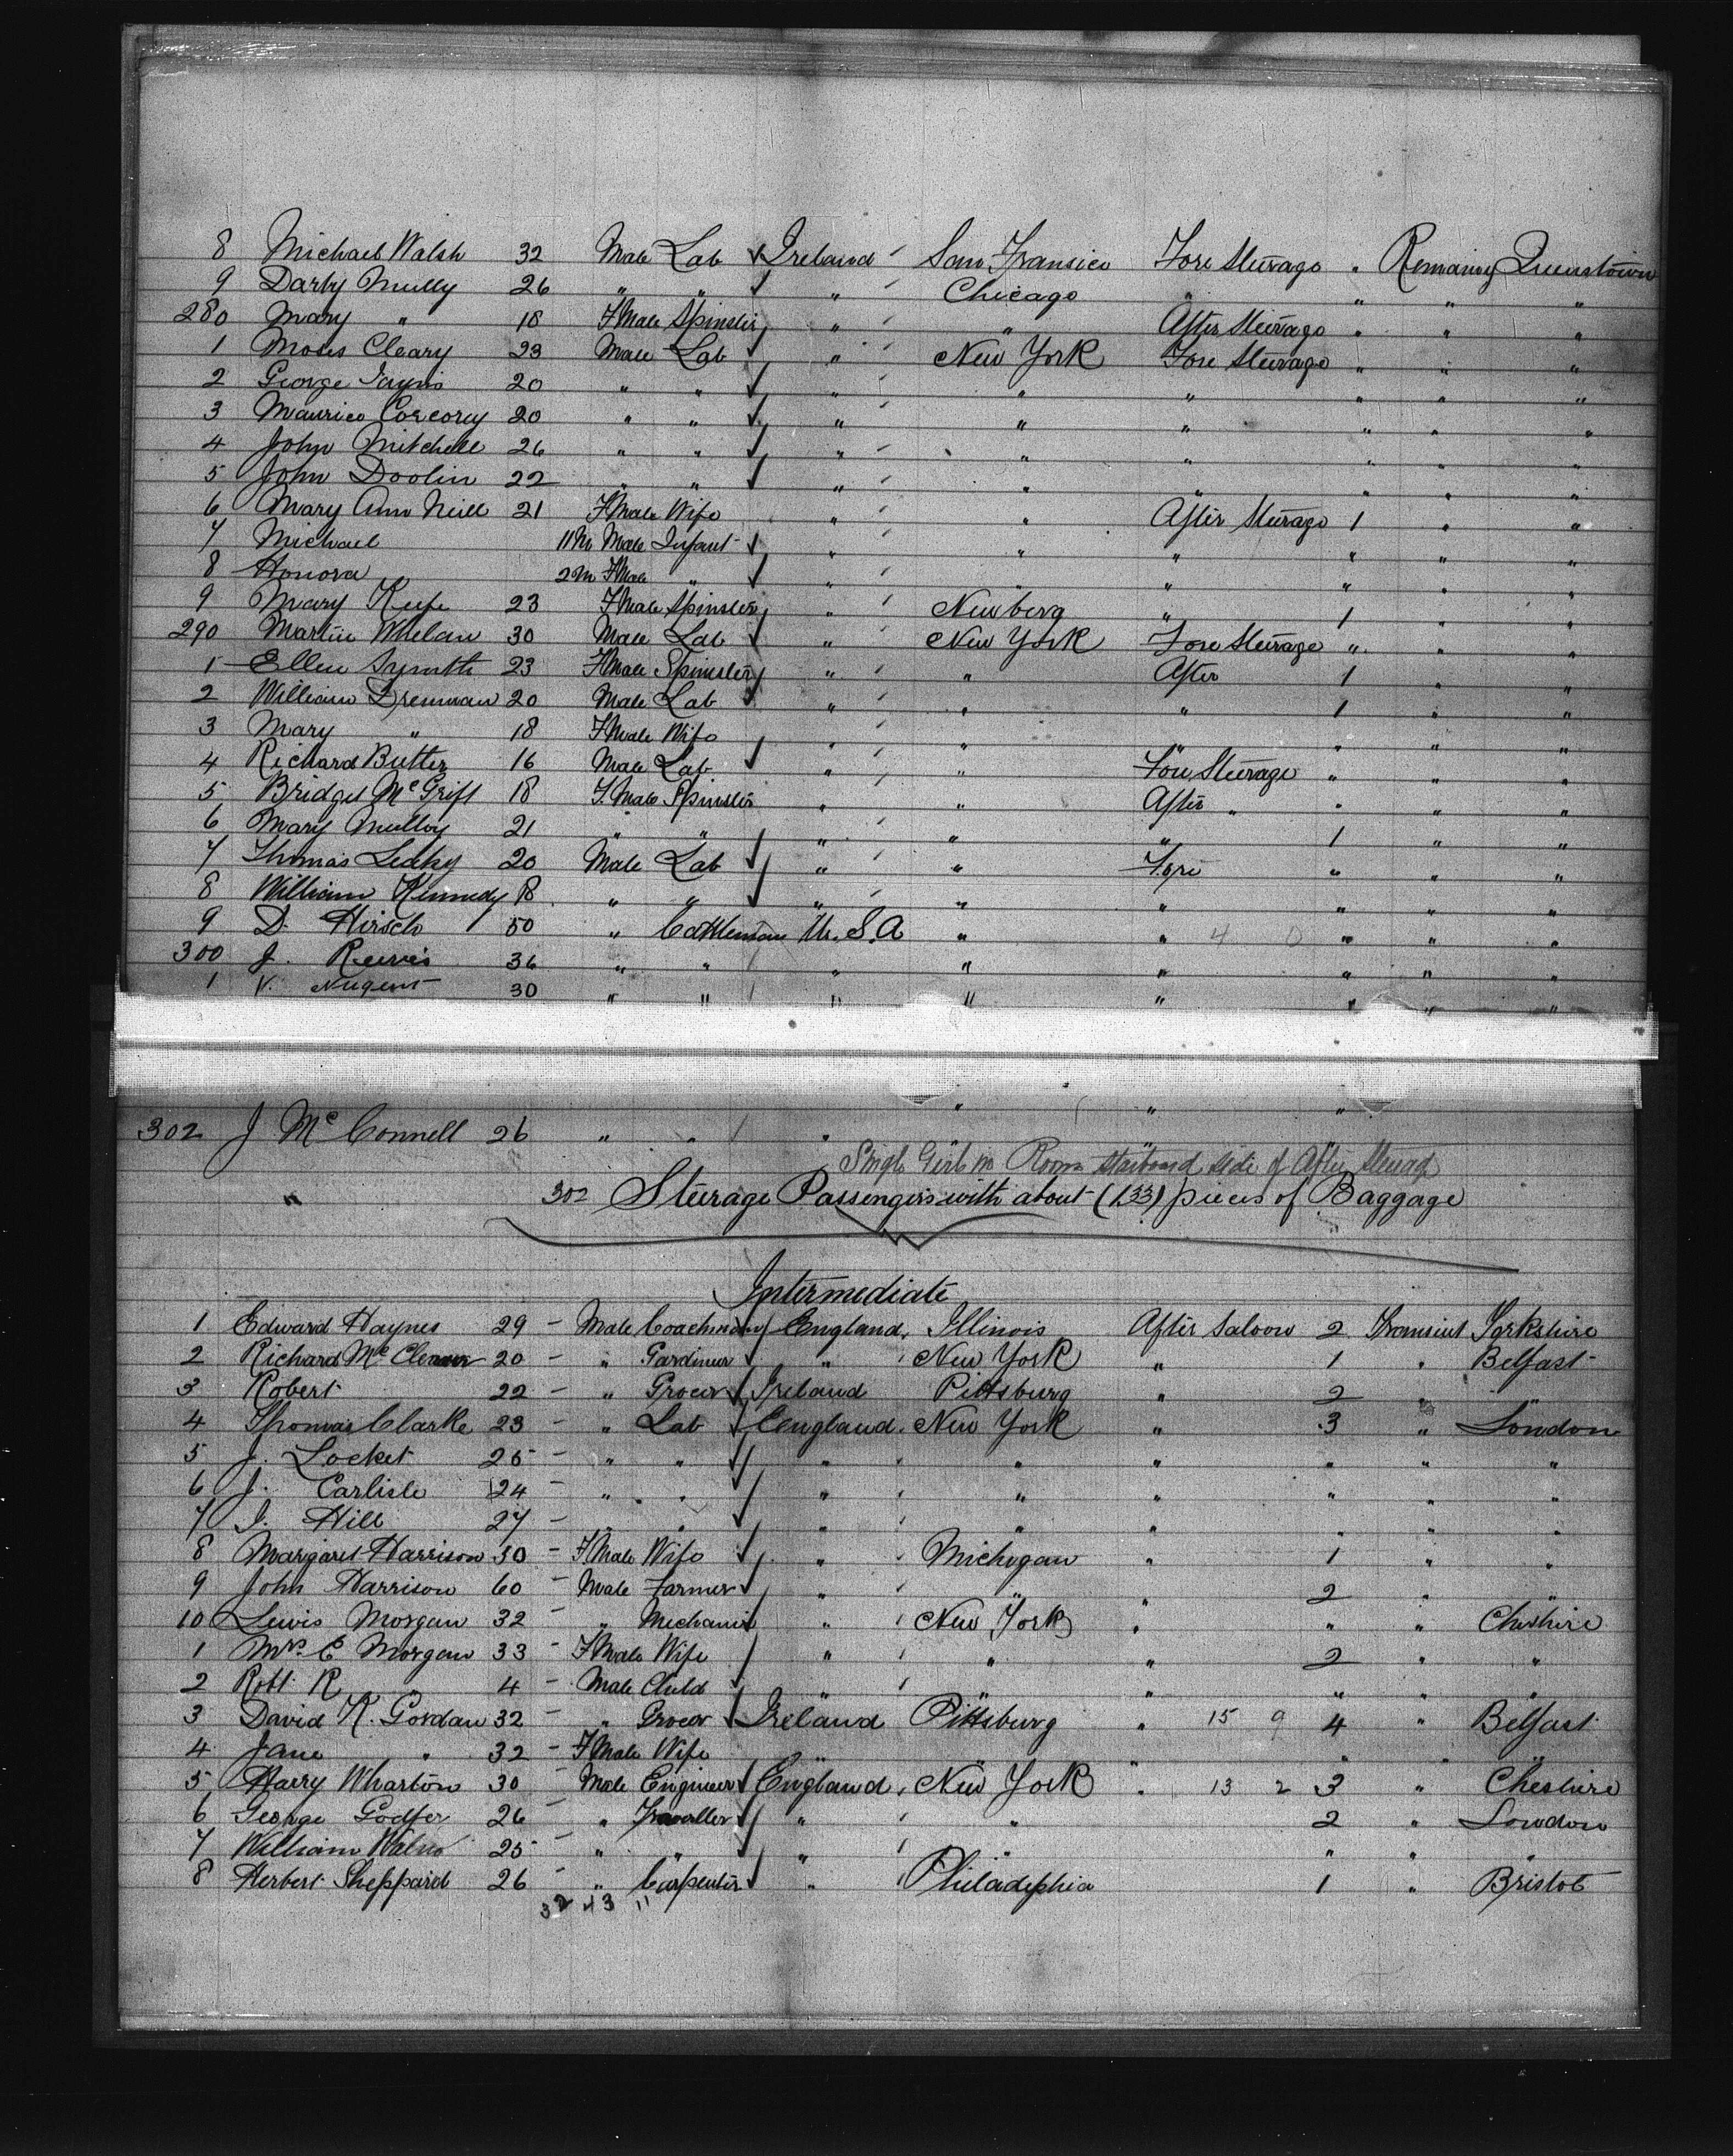 8 Michael Walsh 32 Male Lab Ireland San Fransico Fore Steerage " Remaining Queenstown
9 Darby Mully 26 " " " Chicago " " " "
280 Mary " 18 F Male Spinster " " After Steerage " " "
1 Moses Cleary 23 Male Lab " New York Fore Steerage " " "
2 George 20 " " " " " " " "
3 Maurice Corcorey 20 " " " " " " " "
4 John Mitchell 26 " " " " " " " "
5 John Doolin 22 " " " " " " " "
6 Mary Ann Neill 21 F Male Wife " " After Steerage 1 " "
7 Michael 11 M Male Infant " " " " " "
8 Honora 2 m F Male " " " " " " "
9 Mary Keefe 23 F Male Spinster " Newberg " 1 " "
290 Martin Whelan 30 Male Lab " New York Fore Steerage " " "
1 Ellen Symth 23 F Male Spinster " " After 1 " "
2 William Drennan 20 Male Lab " " " 1 " "
3 Mary " 18 F Male Wife " " " " " "
4 Richard Butler 16 Male Lab " " Fore Steerage " " "
5 Bridget McGrift 18 F. Male Spinster " " After " " " "
6 Mary Mulloy 21 " " " " " 1 " "
7 Thomas Leahy 20 Male Lab " " Fore " " "
8 William Kennedy 18 " " " " " " " "
9 D. Hirsch 50 " Cattleman U. S. A " " 4 0 " " "
300 J. Reeves 36 " " " " " " " "
1 V. Nugent 30 " " " " " " " "
" " "
302 J McConnell 26 " " "
Single Girls in Room starboard side of After Steerag
302 Steerage Passengers with about (133) pieces of Baggage
"
Intermediate
1 Edward Haynes 29 - Male Coachman England Illinois After Saloon 2 Transient Yorkshire
2 Richard Mc 20 - " Gardiner " New York " 1 " Belfast
3 Robert 22 - " Grocer Ireland Pittsburg " 2 " "
4 Thomas Clarke 23 - " Lab England New York " 3 " London
5 J. Locket 25 - " " " " " " " "
6 J. Carlisle 24 - " " " " " " " "
7 J. Hill 27 - " " " " " " " "
8 Margaret Harrison 30 - F Male Wife " Michigan " 1 " "
9 John Harrison 60 - Male Farmer " " " 2 " "
10 Lewis Morgan 32 - " Mechanic " New York " " " Cheshire
1 Mrs. E Morgan 33 - F Male Wife " " " 2 " "
2 Robt. R " 4 - Male Child " " " " " "
3 David K. Gordan 32 - " Grocer Ireland Pittsburg " 15 9 4 " Belfast
4 Jane " 32 - F Male Wife " " " " " "
5 Harry Wharton 30 - Male Engineer England New York " 13 2 3 " Cheshire
6 George Godfer 26 - " Traveller " " 2 " London
7 William 25 - " " " " " " "
8 Herbert Sheppard 26 - " Carpenter " Philadephia 1 " Bristol
32 43 11